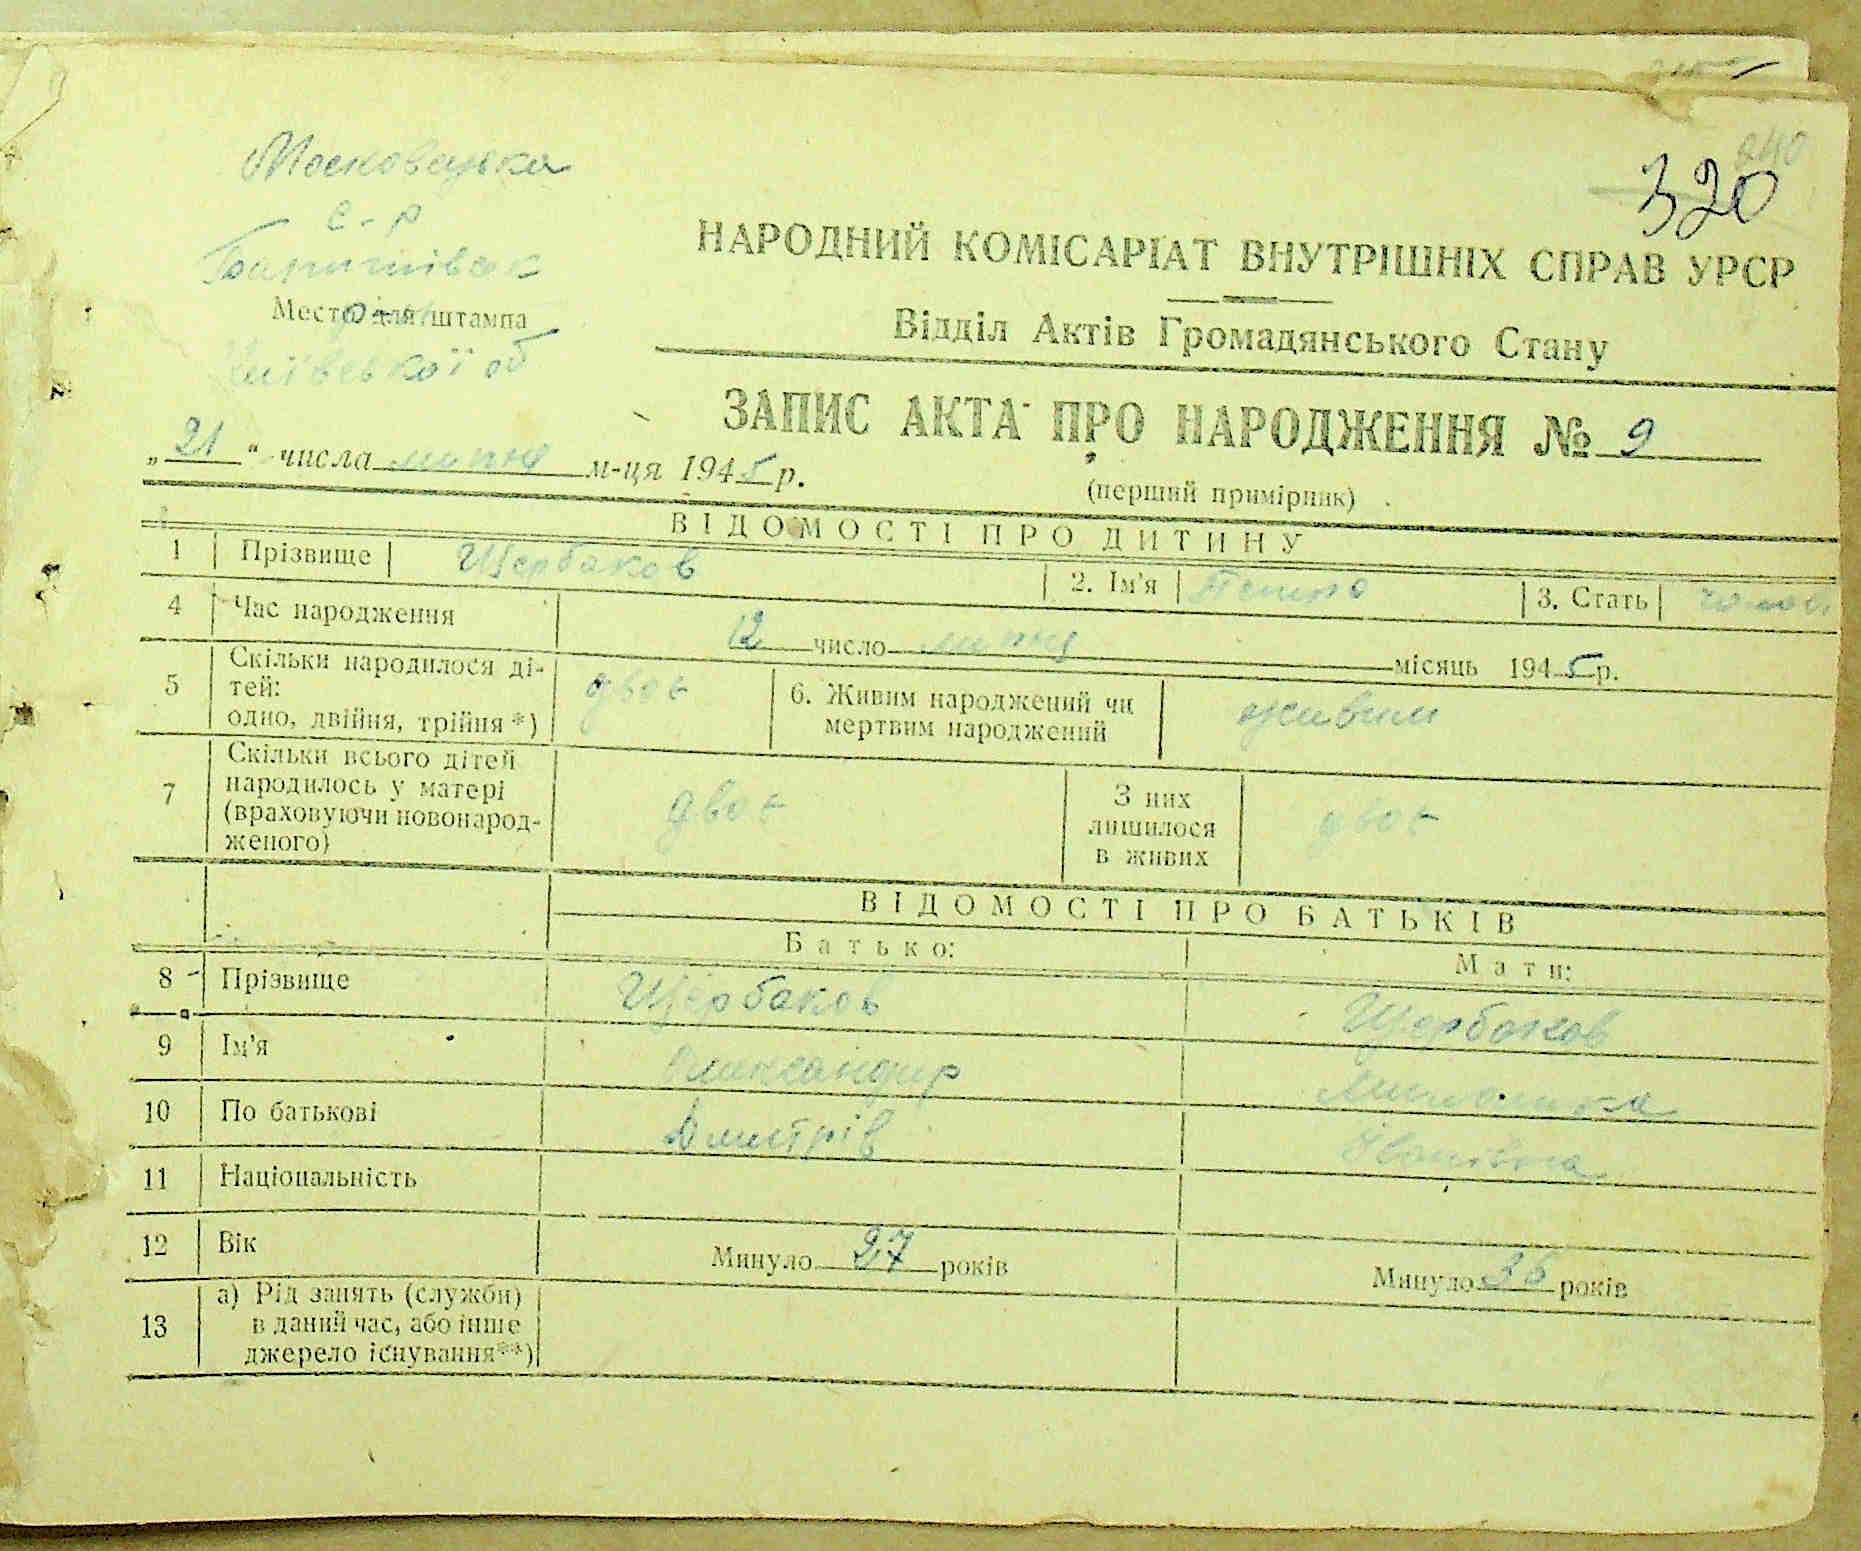 320
с-р
НАРОДНИЙ КОМІСАРІАТ ВНУТРІШНІХ СПРАВ УРСР
Место для штампа
Відділ Актів Громадянського Стану
Київської об
ЗАПИС АКТА ПРО НАРОДЖЕННЯ № 9
„21“ числа липню м-ця 1945 р.
(перший примірник)
ВІДОМОСТІ ПРО ДИТИНУ
1 Прізвище Щербаков 2. Ім'я 3. Стать
4 Час народження 12 число липня місяць 1945 р.
5 Скільки народилося ді-
тей:
одно, двійня, трійня *) двоє 6. Живим народжений чи
мертвим народжений живим
7 Скільки всього дітей
народилось у матері
(враховуючи новонарод-
женого) двоє З них
лишилося
в живих двоє
ВІДОМОСТІ ПРО БАТЬКІВ
Батько: Мати:
8 Прізвище Щербаков Щербаков
9 Ім'я Олександир
10 По батькові Дмитрів Іванівна
11 Національність
12 Вік Минуло 27 років Минуло 36 років
13 а) Рід занять (служби)
в даний час, або інше
джерело існування**)